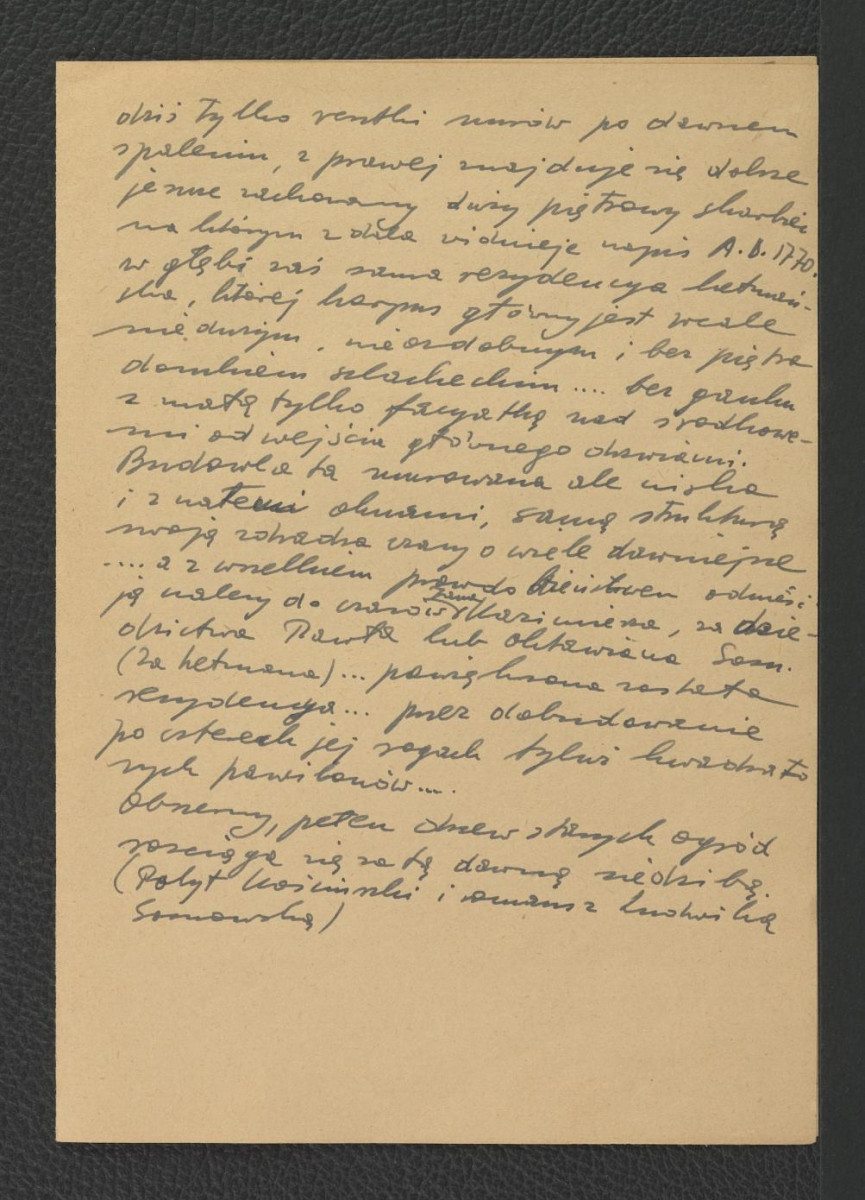 dziś tylko resztki murów po dawnem
spaleniu, z prawej znajduje się dobrze
jeszcze zachowany duży piętrowy skarbiec
na którym z dala widnieje napis A.D. 1770.
w głębi zaś sama rezydencya hetmań-
ska, której korpus główny jest wcale
niedużym, nieozdobnym i bez piętra
domkiem szlacheckim .... bez ganku
z małą tylko facyatką nad środkowe-
mi od wejścia głównego drzwiami.
Budowla ta murowana ale niska
i z małemi oknami, samą strukturą
swoją zdradza czasy o wiele dawniejsze
.... a z wszelkiem prawdobieństwem odnieść
ją należy do czasów Jana Kazimierza, za dzie-
dzictwa Pawła lub Oktawiana Sosn.
(za hetmana) ... powiększona została
rezydencya ... przez dobudowanie
po czterech jej rogach tyluż kwadrato
wych pawilonów ....
Obszerny, pełen drzew starych ogród
rozciąga się za tą dawną siedzibą.
(Pobyt Kościuszki i romans z Ludwiką
Sosnowską)